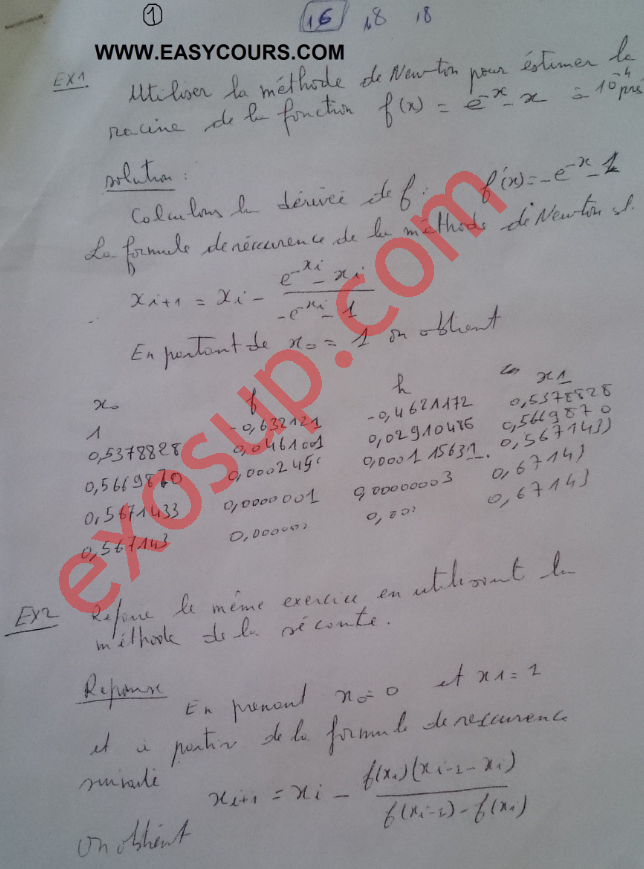 1
16 18 18
WWW.EASYCOURS.COM
EX1 Utiliser la méthode de Newton pour éstimer la
racine de la fonction f(x) = e^-x - x à 10^-4 près
solution :
Calculons la dérivée de f : f'(x) = -e^-x - 1
La formule de réccurence de la méthode de Newton st.
x i+1 = xi - (e^-xi - xi) / (-e^-xi - 1)
En partant de x0 = 1 on obtient
x0 f h x1
1 -0,632121 -0,4621172 0,5378828
0,5378828 0,0461001 0,02910486 0,5669870
0,5669870 0,000245 0,000115631. 0,5671433
0,5671433 0,0000001 0,00000003 0,67143
0,567143 0,000000 0,000 0,67143
exosup.com
EX2 Refaire le même exercice en utilisant la
méthode de la séconte.
Réponse En prenant x0 = 0 et x1 = 1
et à partir de la formule de reccurence
suivante
xi+1 = xi - f(xi)(xi-1 - xi) / (f(xi-1) - f(xi))
on obtient